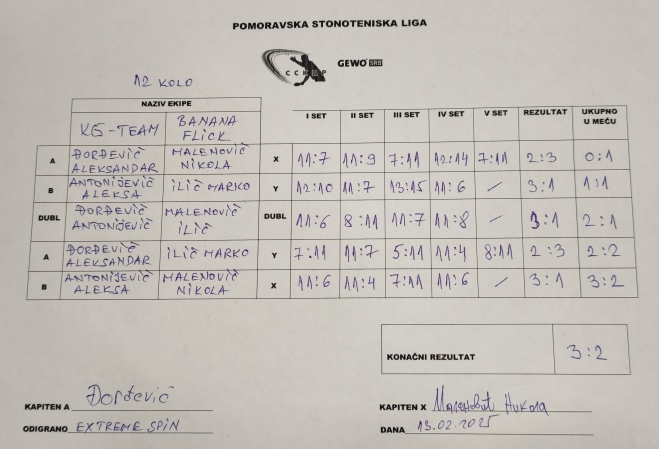 POMORAVSKA STONOTENISKA LIGA
CCKMP GEWO SRB
12 KOLO
NAZIV EKIPE
KG-TEAM BANANA FLICK I SET II SET III SET IV SET V SET REZULTAT UKUPNO U MEČU
A ĐORĐEVIČ ALEKSANDAR MALENOVIČ NIKOLA X 11:7 11:9 7:11 12:14 7:11 2:3 0:1
B ANTONIJEVIČ ALEKSA ILIČ MARKO Y 12:10 11:7 13:15 11:6 / 3:1 1:1
DUBL ĐORĐEVIČ ANTONIJEVIČ MALENOVIČ ILIČ DUBL 11:6 8:11 11:7 11:8 / 3:1 2:1
A ĐORĐEVIČ ALEKSANDAR ILIČ MARKO Y 7:11 11:7 5:11 11:4 8:11 2:3 2:2
B ANTONIJEVIČ ALEKSA MALENOVIČ NIKOLA X 11:6 11:4 7:11 11:6 / 3:1 3:2
KONAČNI REZULTAT 3:2
KAPITEN A Đorđevič KAPITEN X Маленовић Никола
ODIGRANO EXTREME SPIN DANA 13.02.2025